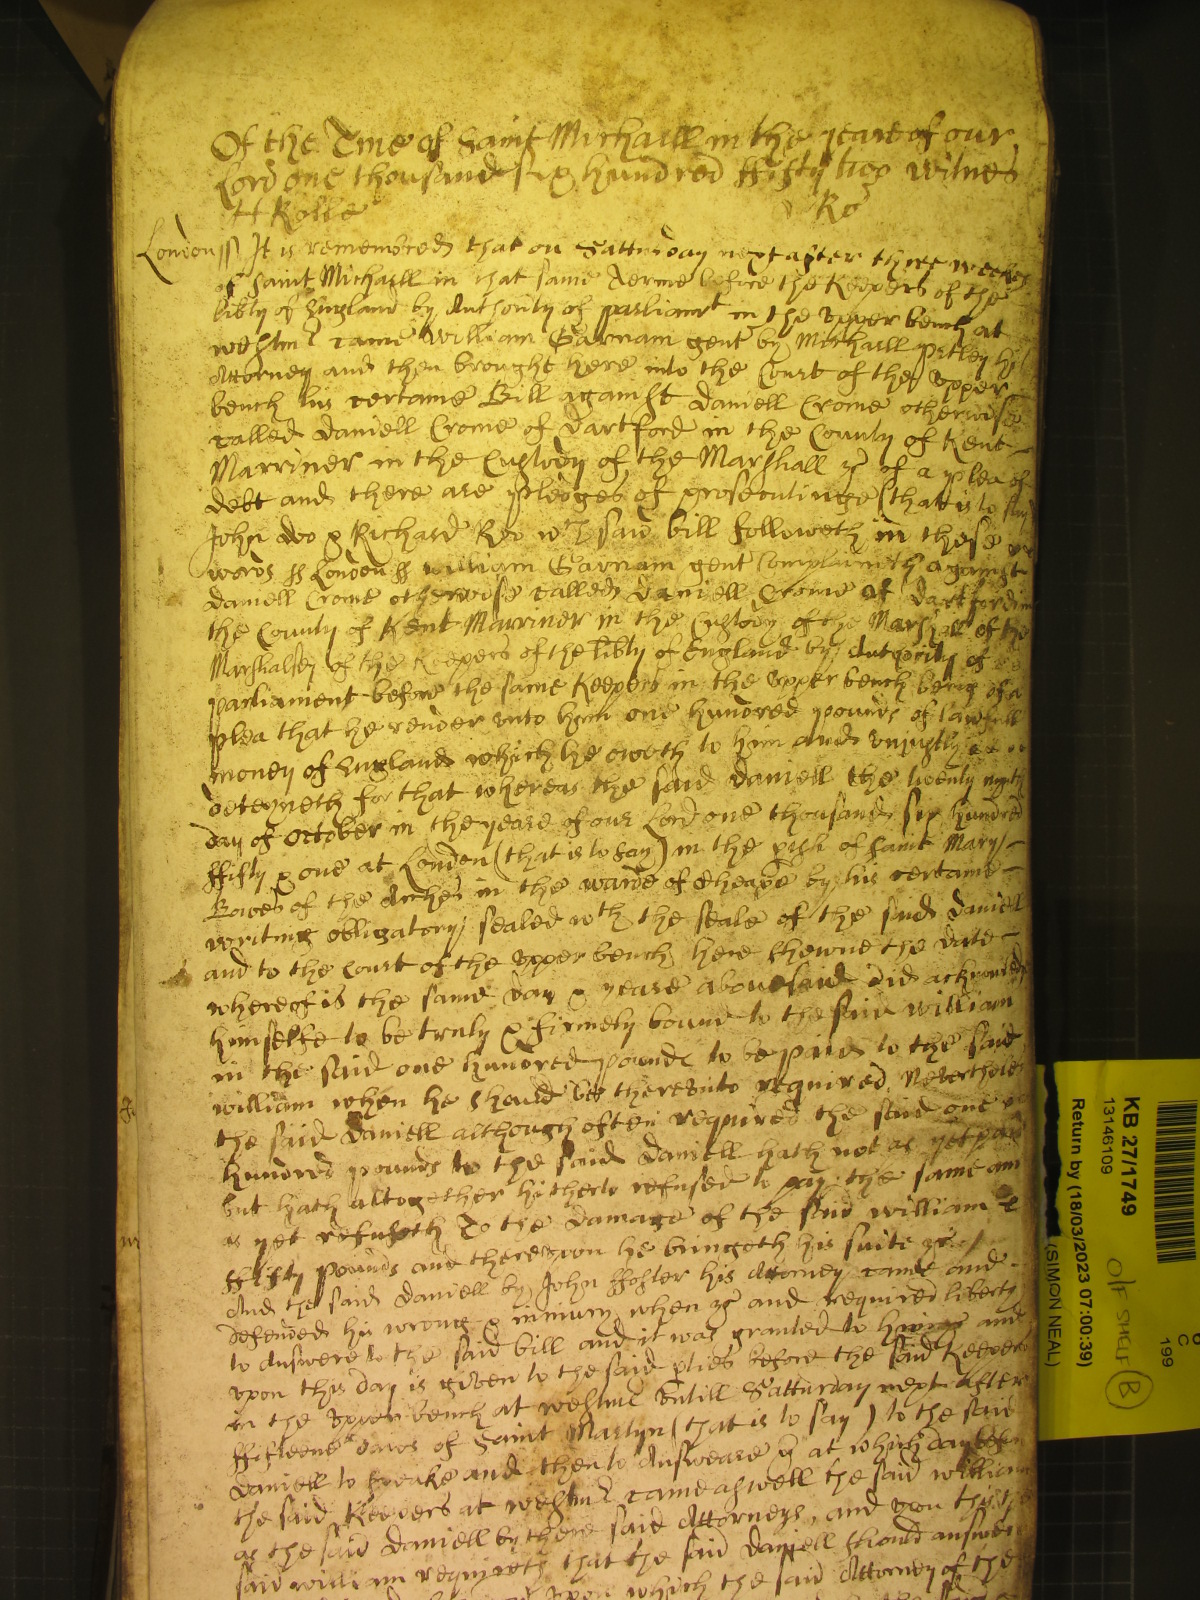 Of the Tme of Saint Michaell in the yeare of our
Lord one thousand six hundred ffifty two witnes
H Rolle Ro
London ss It is remembred that on Satturday next after three weekes
of Saint Michaell in that same Terme before the Keepers of the
libty of England by Authority of parliamt in the upper bench at
westmr came William Garnam gent by Michaell pitley his
Attorney and then brought here into the Court of the upper
bench his certaine Bill against Daniell Crome otherwise
called Daniell Crome of Dartford in the County of Kent
Marriner in the Custody of the Marshall &c of a plea of
debt and there are pledges of prosecutinge (that is to say
John doo & Richard Roo wch said bill followeth in these
words ss London ss William Garnam gent Complaineth against
Daniell Crome otherwise called Daniell Crome of Dartford in
the County of Kent Marriner in the Custody of the Marshall of the
Marshalsey of the Keepers of the libty of England by Authority of
parliament before the same Keepers in the upper bench being of a
plea that he render unto him one hundred pounds of lawfull
money of England which he oweth to him and uniustly
deteyneth for that whereas the said Daniell the twenty
day of October in the yeare of our Lord one thousand six hundred
ffifty & one at London (that is to say) in the pish of Saint Mary
Bowes of the Arches in the warde of Cheape by his certaine
writing obligatory sealed wth the seale of the said Daniell
and to the Court of the upper bench here shewne the date
whereof is the same day & yeare abovesaid did acknowledge
himselfe to be truly & firmely bound to the said William
in the said one hundred pounds to be paid to the said
William when he should bee thereunto required Neverthelesse
the said Daniell although often required the said one
hundred pounds to the said Daniell hath not as yet paid
but hath altogether hitherto refused to pay the same and
as yet refuseth To the damage of the said William
ffifty pounds and thereupon he bringeth his suite &c
And the said Daniell by John ffoster his Attorney came and
defended his wrong & iniury when &c and required liberty
to Answere to the said bill and it was granted to him and
upon this day is given to the said pties before the said Keepers
in the upper bench at westmr untill Satturday next after
ffifteene daies of Saint Martyn (that is to say) to the said
Daniell to speake and then to Answeare &c at which day before
the said Keepers at westmr came aswell the said William
as the said Daniell by there said Attorneys, and upon this the
said William requireth that the said Daniell should answer
upon which the said Attorney of the
KB 27/1749
13146109
Return by (18/03/2023 07:00:39)
(SIMON NEAL)
O/F SHELF B
C
199